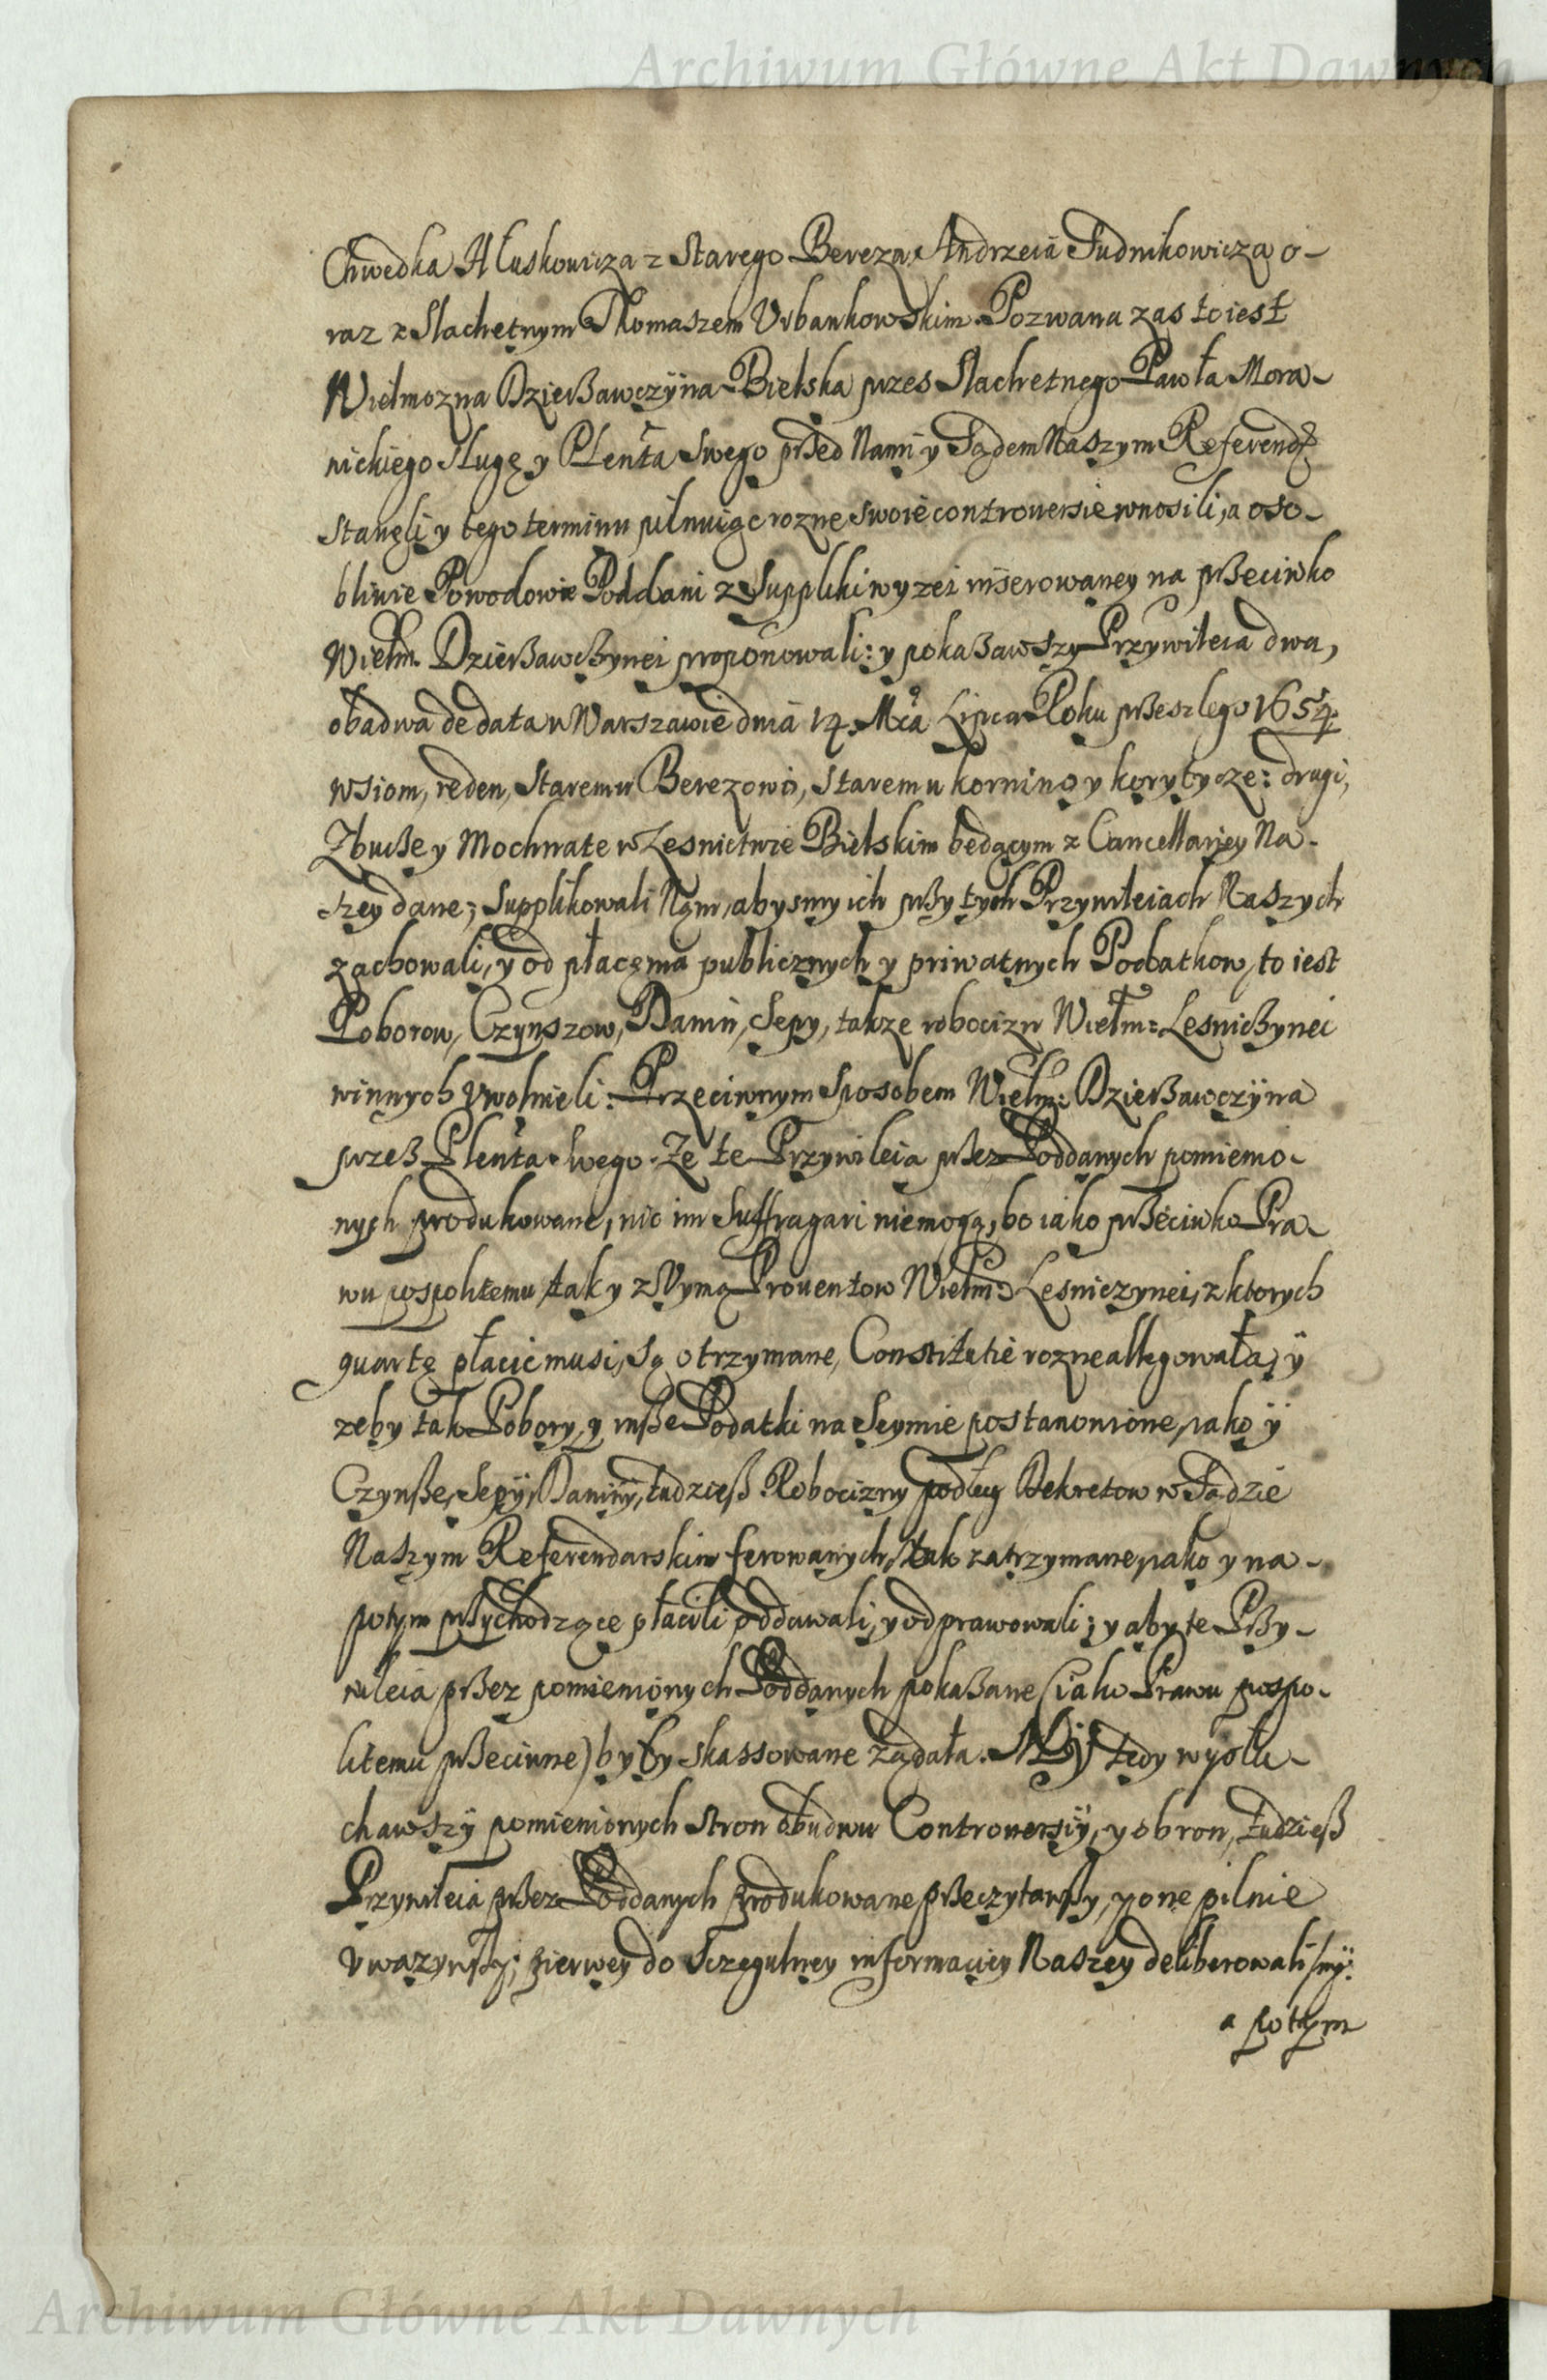 Archiwum Główne Akt Dawnych
Chwedka Hłuskowicza z Starego Bereza, Andrzeia Sudnikowicza o-
raz z Slachetnym Thomaszem Vrbankowskim. Pozwana zas to iest
Wielmozna Dzierßawczÿna Bielska przes Slachetnego Pawła Mora-
nickiego Sługę y Plenta swego przed Nami y Sądem Naszym Referend:
Stanęli y tego terminu pilnuiąc rozne swoie controuersie wnosili, a oso-
bliwie Powodowie Poddani z Suppliki wyzei inserowaney na przeciwko
Wielm. Dzierßawczynei proponowali: y pokaßawszy Przywileia dwa,
obadwa de data w Warszawie dnia 14. Mca Lipca Roku przeszlego 1654.
wsiom, ieden, Staremu Berezowi, Staremu kornino y korytycze: drugi,
Zbucze y Mochnate w Lesnictwie Bielskim będącym z Cancellariey Na-
szey dane; Supplikowali Nam, abysmy ich przy tych Przywileiach Naszych
zachowali, y od płacęnia publicznych y priwatnych Podatkow, to iest
Poborow, Czynszow, Danin, Sepy, takze robocizn Wielm: Lesniczynei
winnych vwolnieli: Przeciwnym sposobem Wielm: Dzierßawczÿna
przeß Plenta swego. Ze te Przywileia przez Poddanych pomienio-
nych produkowane, nic im suffragari niemogą, bo iako przeciwko Pra-
wu pospolitemu, tak y z Vymą Prouentow Wielm: Lesniczynei, z ktorych
quartę płacic musi, Są otrzymane, Constitutie rozne allegowała, ÿ
zeby tak Pobory, y inße Podatki na Seymie postanowione, iako ÿ
Czynße, Sepÿ, Daninÿ, tudzieß Robocizny podług Dekretow w Sądzie
Naszym Referendarskim ferowanych, tak zatrzymane, iako y na-
potym przychodzące płacili, oddawali, y odprawowali; y aby te Przy-
wileia przez pomienionych Poddanych pokaßane (iako Prawu pospo-
litemu przeciwne) były skassowane ządała. Mÿ tedy wysłu-
chawszÿ pomienionych Stron obudwu Controuersiÿ, y obron, tudzieß
Przywileia przez Poddanych produkowane przeczytawßy, y one pilnie
vwazywßy; pierwey do Sczegulney informaciey Naszey deliberowalismÿ.
a potym
Archiwum Główne Akt Dawnych